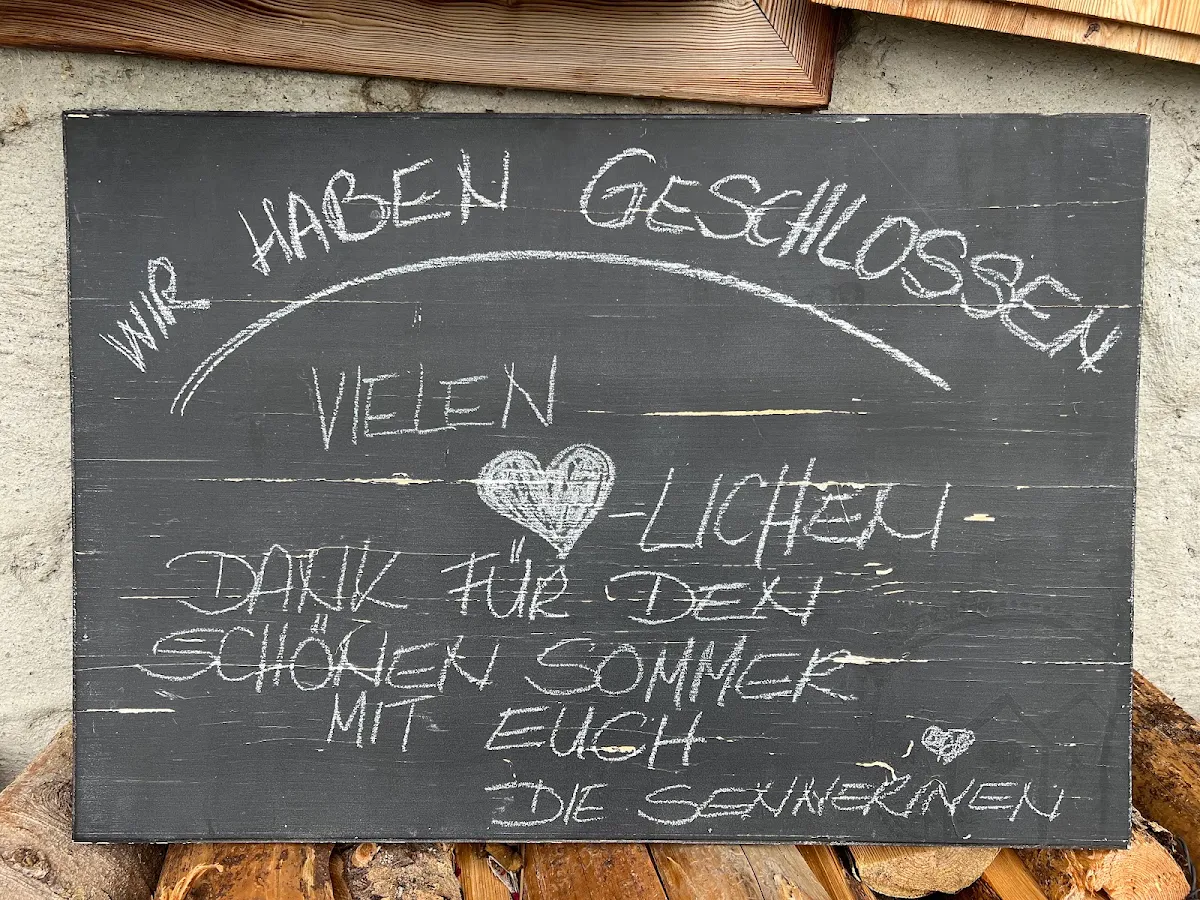 WIR HABEN GESCHLOSSEN
VIELEN
-LICHEN
DANK FÜR DEN
SCHÖNEN SOMMER
MIT EUCH
DIE SENNERINEN